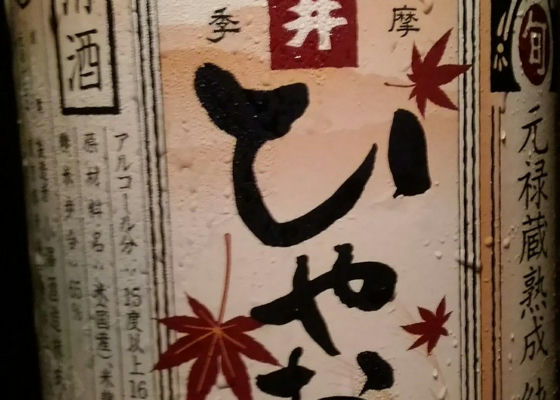 旬
元禄蔵熟成 純
摩
井
季
ひやお
清酒
アルコール分 15度以上16
原材料名 米(国産) 米
精米歩合 65%
酒造株式